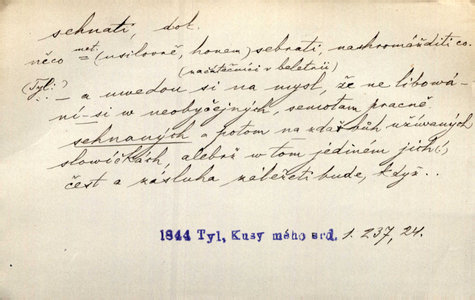 sehnati, dok.
něco met. = (usilovně, honem) sebrati, nashromážditi co.
(Tyl:) (začátečníci v beletrii)
... – a uwedou si na mysl, že ne libowá-
ní-si w neobyčejných, semotam pracně
sehnaných a potom na zdařbůh užíwaných
slowíčkách, alebrž w tom jediném jich
čest a zásluha záležeti bude, když ..
1844 Tyl, Kusy mého srd. 1. 237, 24.